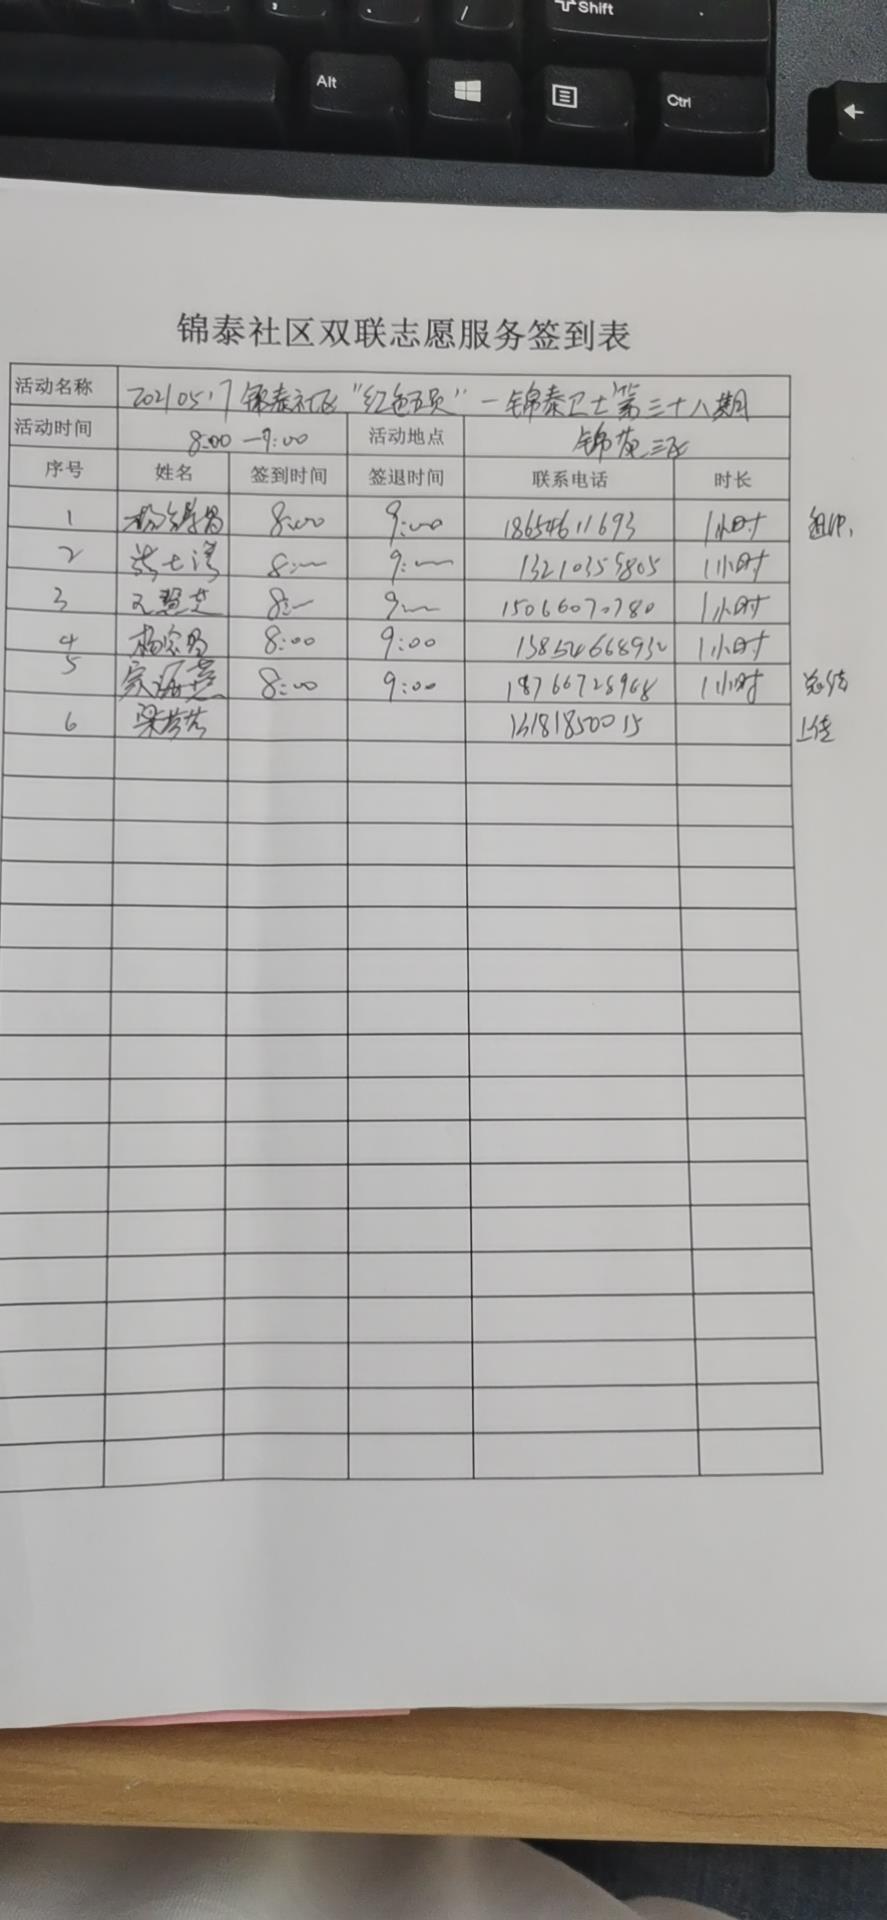 Shift
Alt
Ctrl
锦泰社区双联志愿服务签到表
活动名称 20210517锦泰社区“红色五员”—锦泰卫士第三十八期
活动时间 8:00—9:00 活动地点 锦苑三区
序号 姓名 签到时间 签退时间 联系电话 时长
1 8:00 9:00 18654611693 1小时 组织
2 8:— 9:— 13210355805 1小时
3 8:— 9:— 15066070780 1小时
4 杨宗昌 8:00 9:00 1小时
5 8:00 9:00 18766728968 1小时 总结
6 梁芳芳 上传